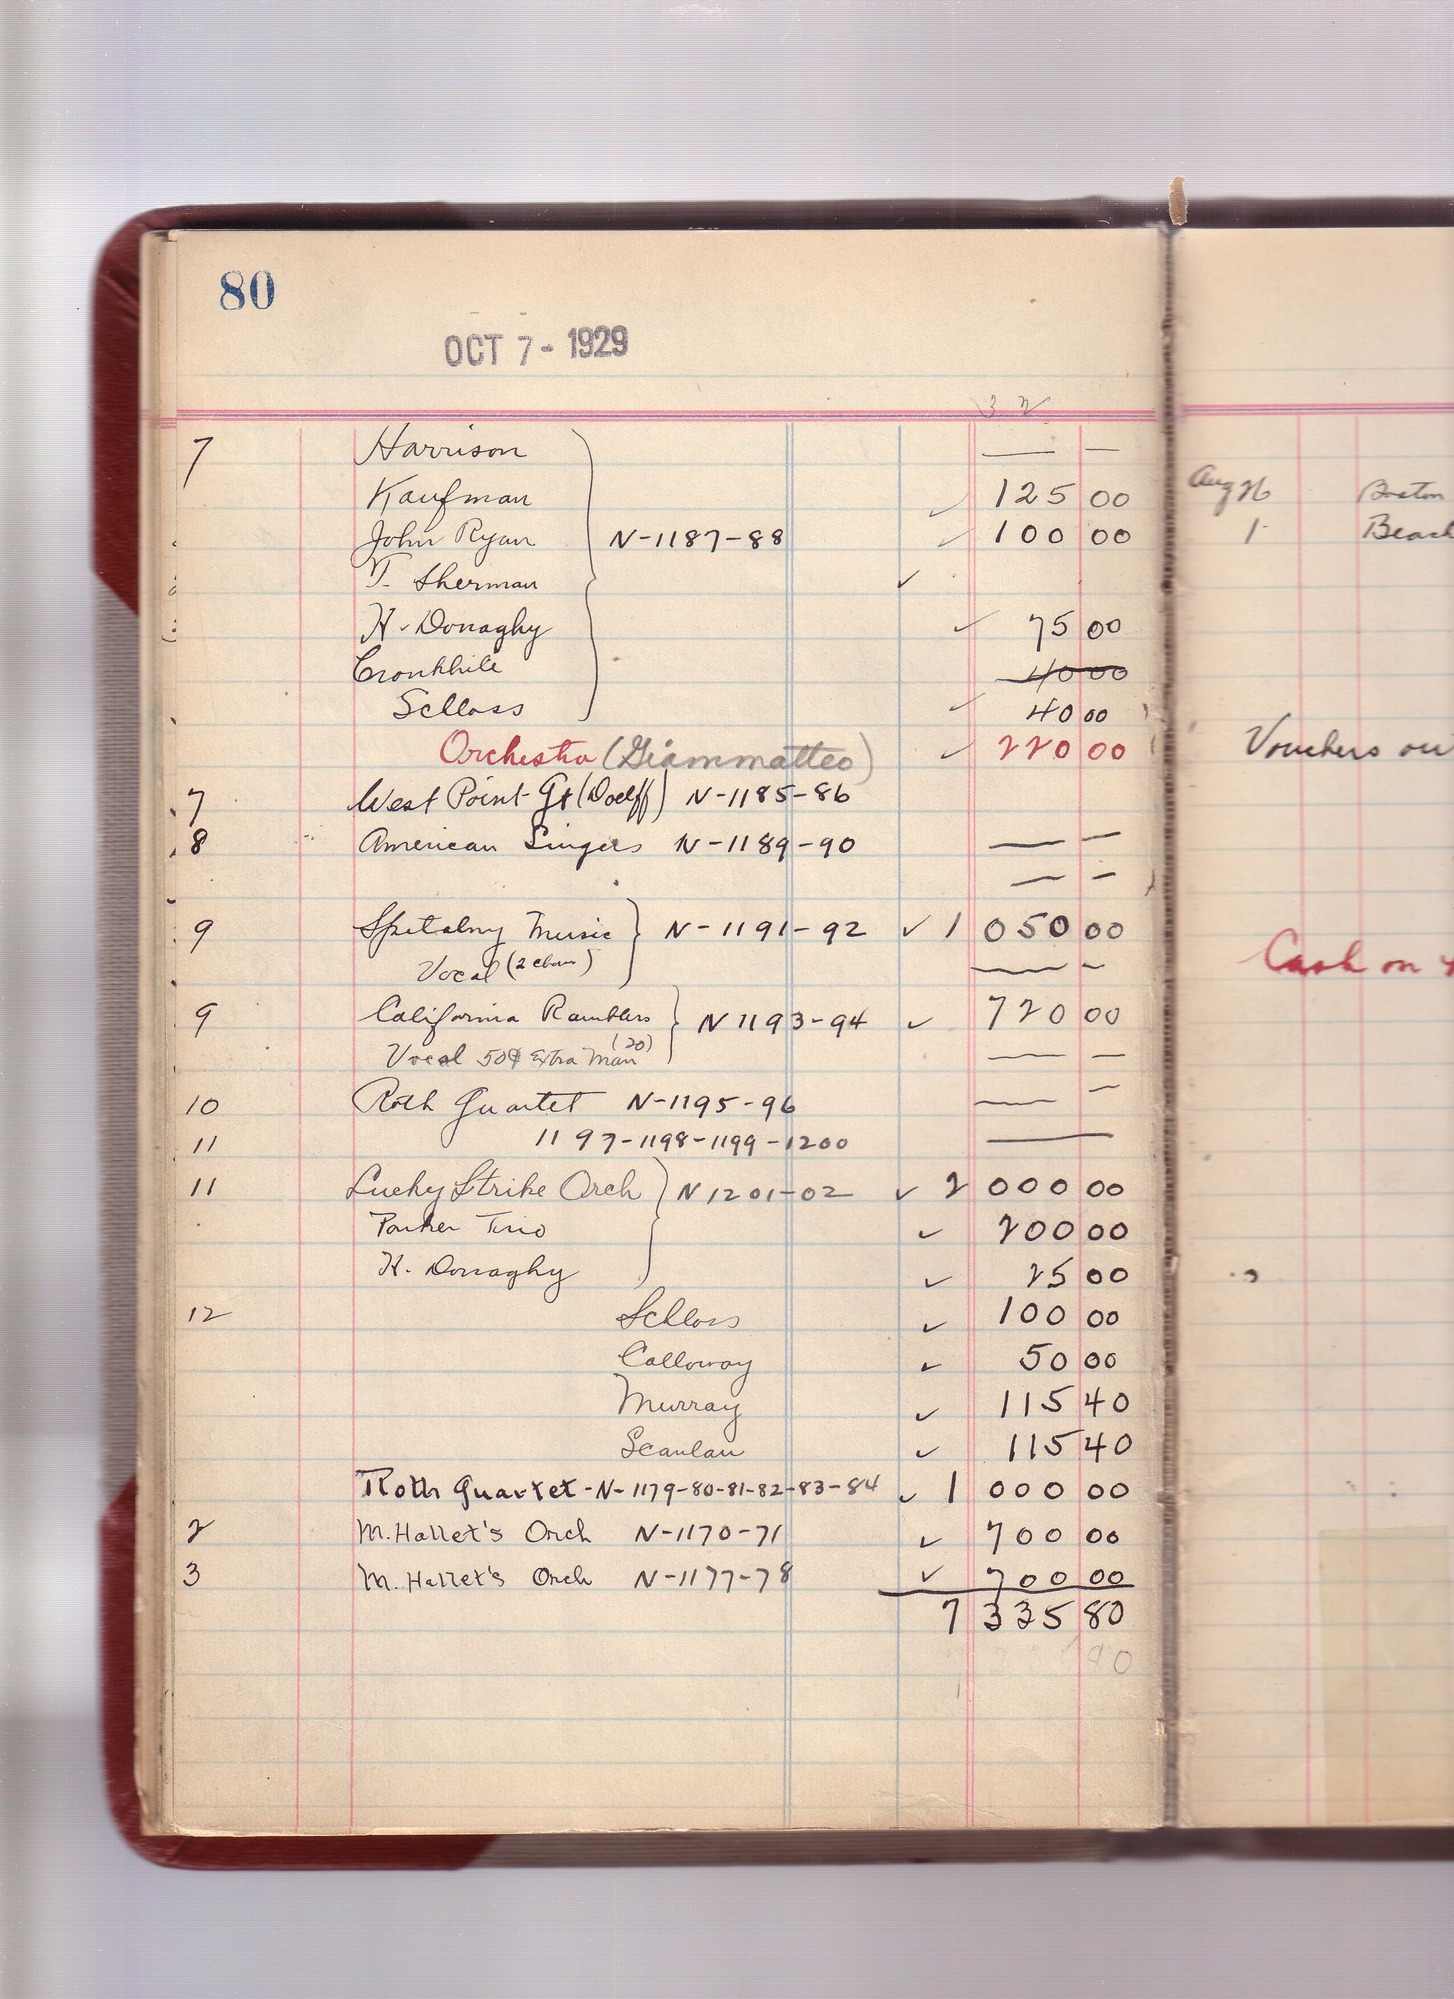 80
OCT 7 - 1929
32
7 Harrison — —
Kaufman ✓ 125 00
John Ryan N-1187-88 ✓ 100 00
T. Sherman ✓
H. Donaghy ✓ 75 00
Cronkhile 40 00
Schloss ✓ 40 00
Orchestra (Giammatteo) ✓ 220 00
7 West Point Gt (Doelff) N-1185-86
8 American Singers N-1189-90 — —
— —
9 Spitalny Music N-1191-92 ✓ 1 050 00
Vocal (2 chorus) — —
9 California Ramblers N 1193-94 ✓ 720 00
Vocal 50¢ Extra Man (20) — —
10 Roth Quartet N-1195-96 — —
11 1197-1198-1199-1200 —
11 Lucky Strike Orch N 1201-02 ✓ 2 000 00
Parker Trio ✓ 200 00
H. Donaghy ✓ 25 00
12 Schloss ✓ 100 00
Calloway ✓ 50 00
Murray ✓ 115 40
Scanlan ✓ 115 40
Roth Quartet-N-1179-80-81-82-83-84 ✓ 1 000 00
2 M. Hallet's Orch N-1170-71 ✓ 700 00
3 M. Hallet's Orch N-1177-78 ✓ 700 00
7 335 80
Aug 26 Boston
1 Beach
Vouchers out
Cash on